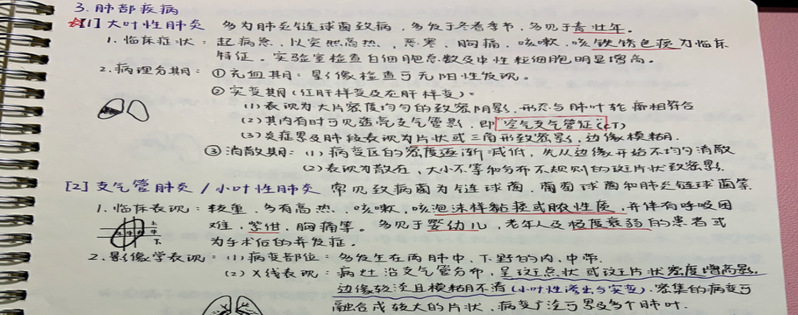 3. 肺部疾病
[1] 大叶性肺炎 多为肺炎链球菌致病，多发于冬春季节，多见于青壮年。
1. 临床症状：起病急，以突然高热、恶寒、胸痛、咳嗽、咳铁锈色痰为临床
特征。实验室检查白细胞总数及中性粒细胞明显增高。
2. 病理分期：①充血期：影像检查可无阳性发现。
②实变期（红肝样变及灰肝样变）：
(1) 表现为大片密度均匀的致密阴影，形态与肺叶轮廓相符合
(2) 其内有时可见透亮支气管影，即“空气支气管征”(CT)
(3) 炎症累及肺段表现为片状或三角形致密影，边缘模糊。
③消散期：(1) 病变区的密度逐渐减低，先从边缘开始不均匀消散
(2) 表现为散在、大小不等和分布不规则的斑片状致密影。
[2] 支气管肺炎/小叶性肺炎 常见致病菌为链球菌，葡萄球菌和肺炎链球菌等。
1. 临床表现：较重，多有高热、咳嗽，咳泡沫样黏痰或脓性痰，并伴有呼吸困
难，紫绀，胸痛等。多见于婴幼儿，老年人及极度衰弱的患者或
为手术后的并发症。
2. 影像学表现：(1) 病变部位：多发生在两肺中、下野的内、中带。
(2) X线表现：病灶沿支气管分布，呈斑点状或斑片状密度增高影，
边缘较淡且模糊不清（小叶性渗出与实变）。密集的病变可
融合成较大的片状，病变广泛可累及多个肺叶。